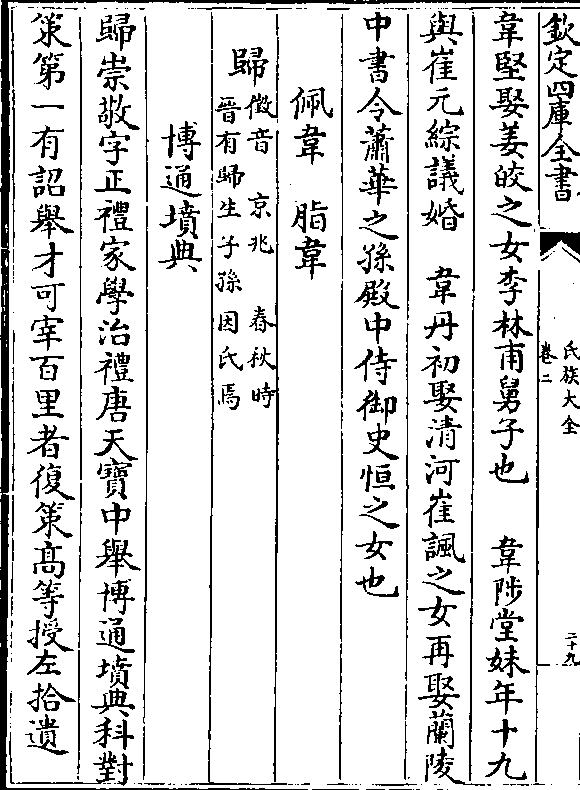 欽定四庫全書
氏族大全
卷二
二十九
韋堅娶姜皎之女李林甫舅子也　韋陟堂妹年十九
與崔元綜議婚　韋丹初娶清河崔諷之女再娶蘭陵
中書令蕭華之孫殿中侍御史恒之女也
佩韋　脂韋
歸徵音　京兆　春秋時
晉有歸生子孫因氏焉
博通墳典
歸崇敬字正禮家學治禮唐天寶中舉博通墳典科對
策第一有詔舉才可宰百里者復策髙等授左拾遺